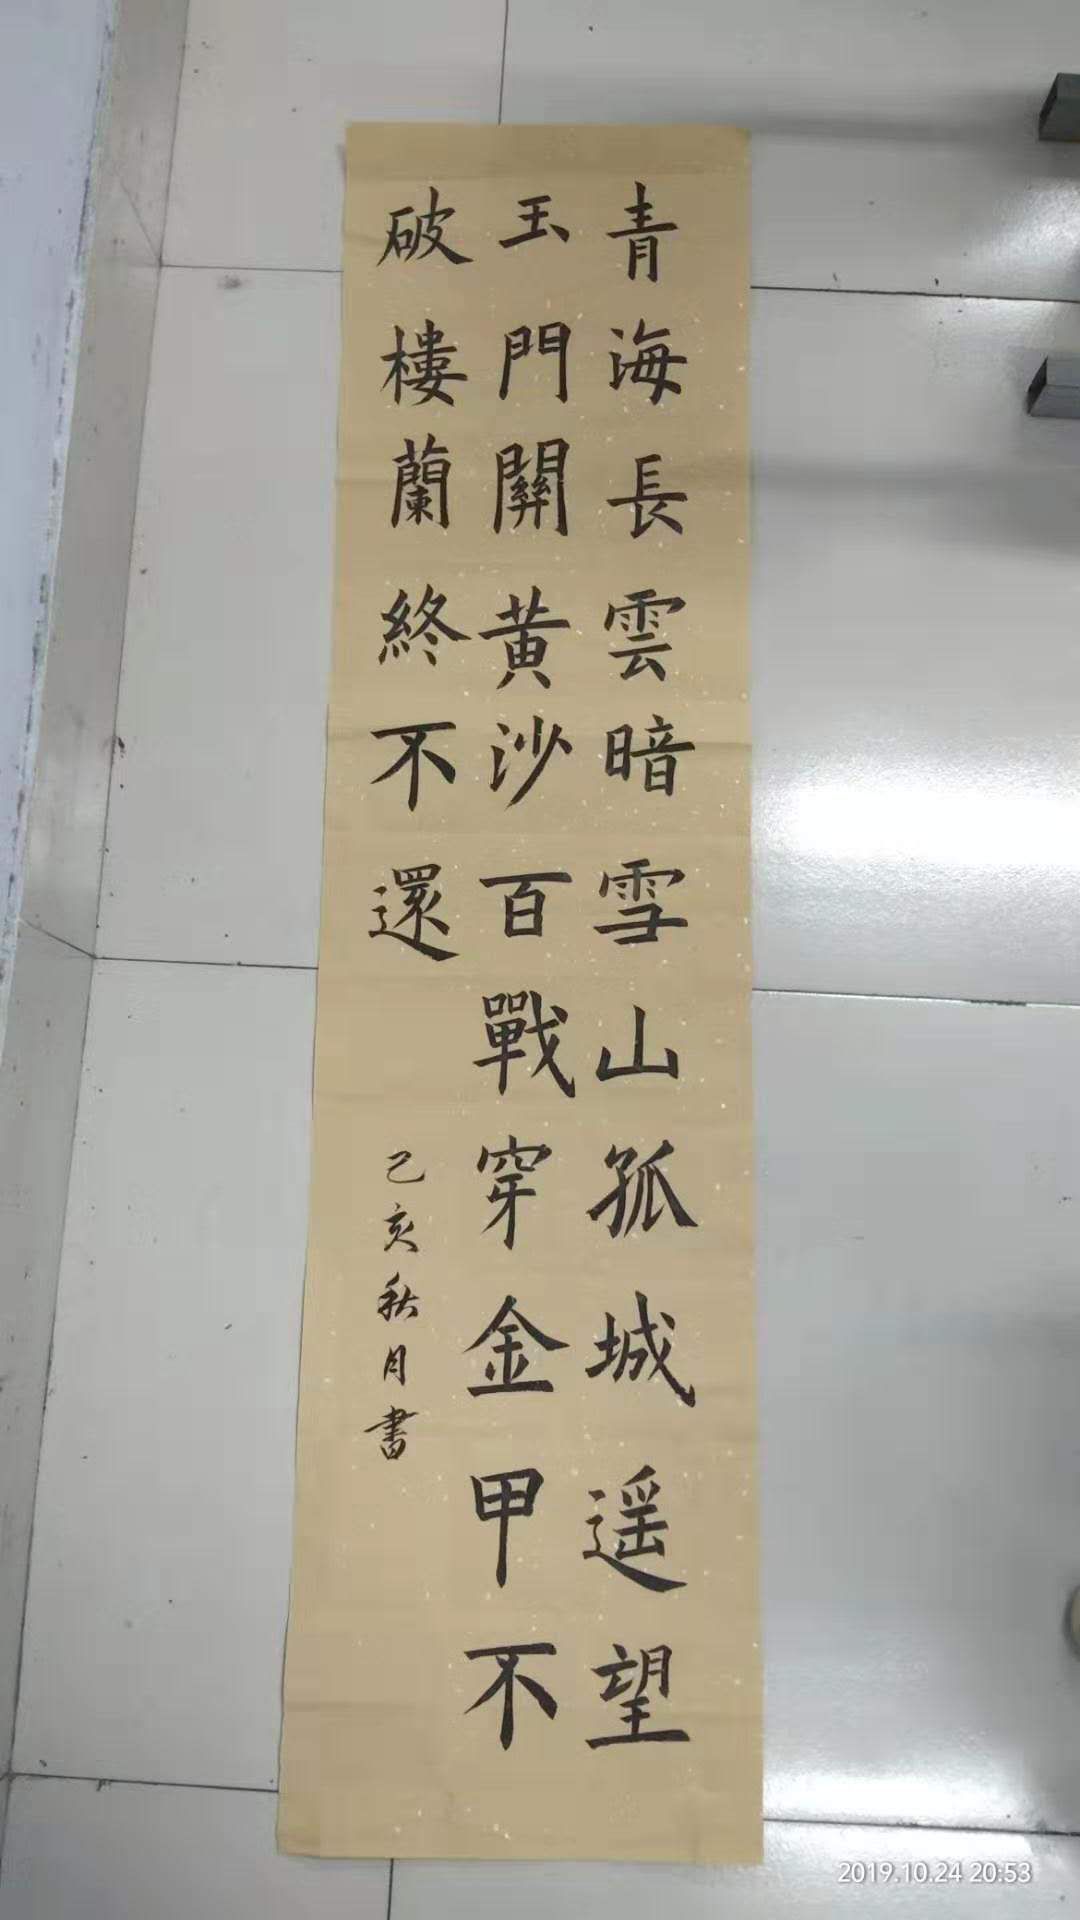 青海長雲暗雪山孤城遥望
玉門關黄沙百戰穿金甲不
破樓蘭終不還
己亥秋月書
2019.10.24 20:53